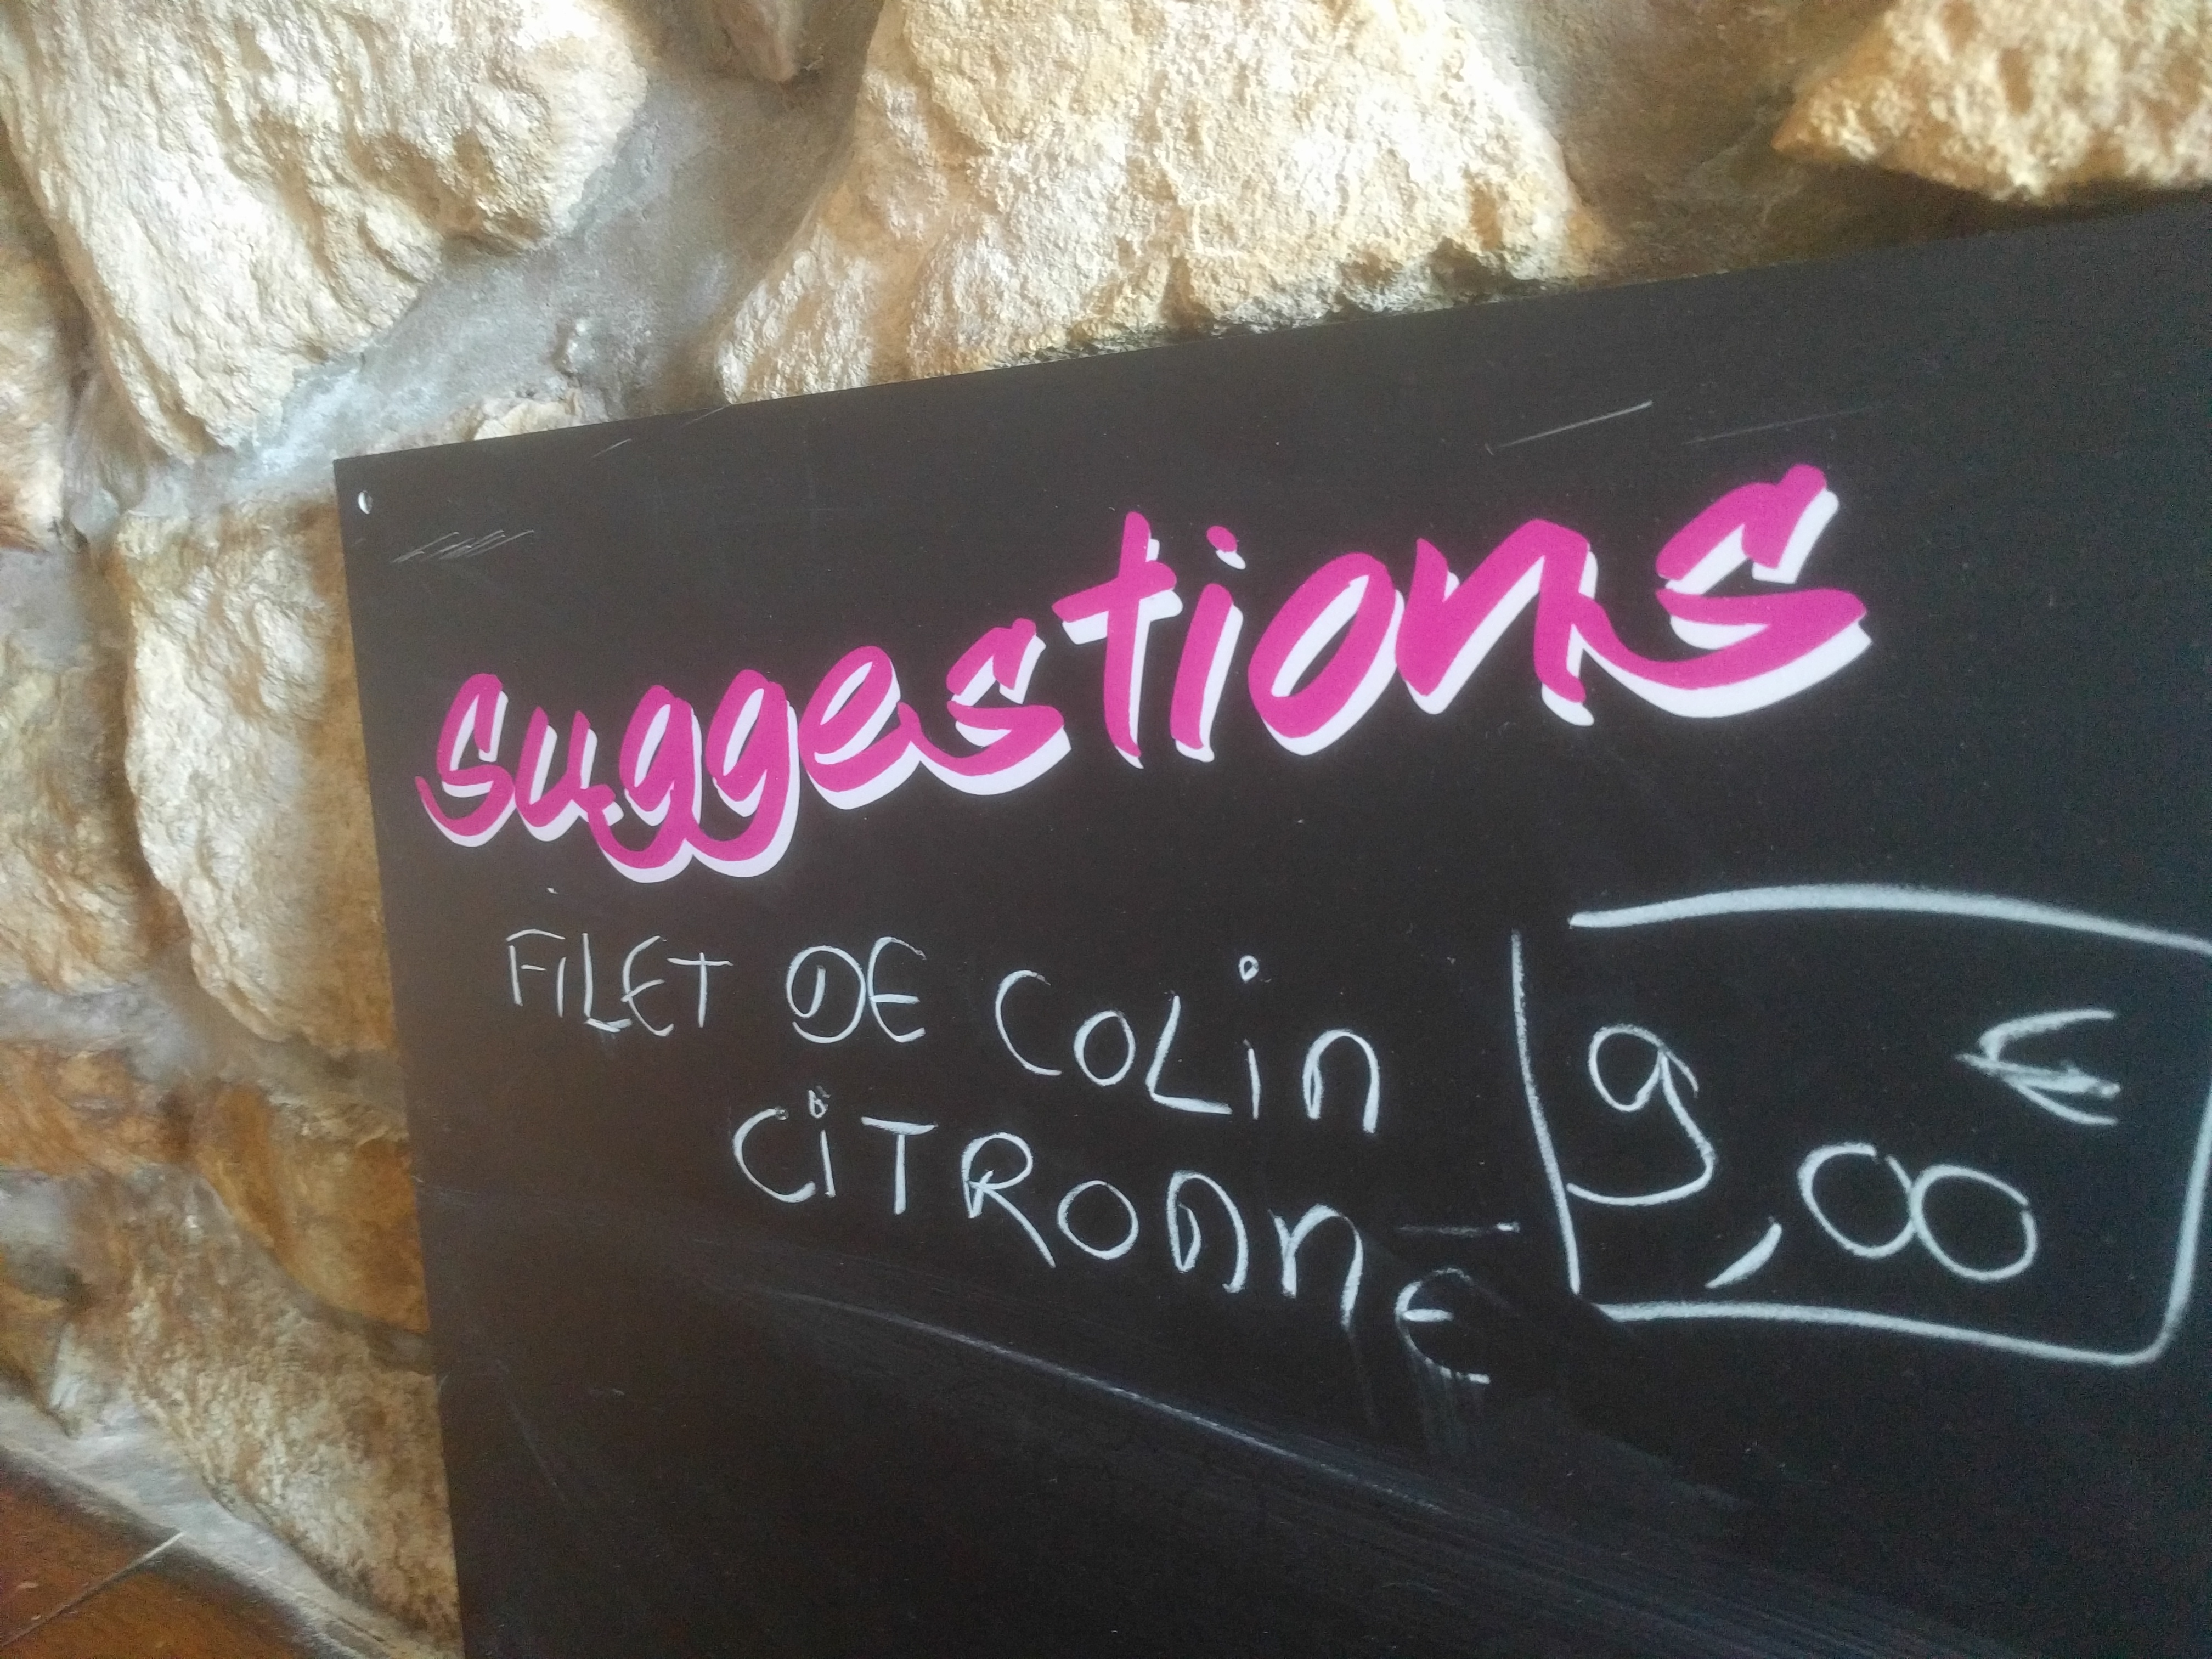 suggestions
FiLET DE COLin
CiTRONnE
9,00 €